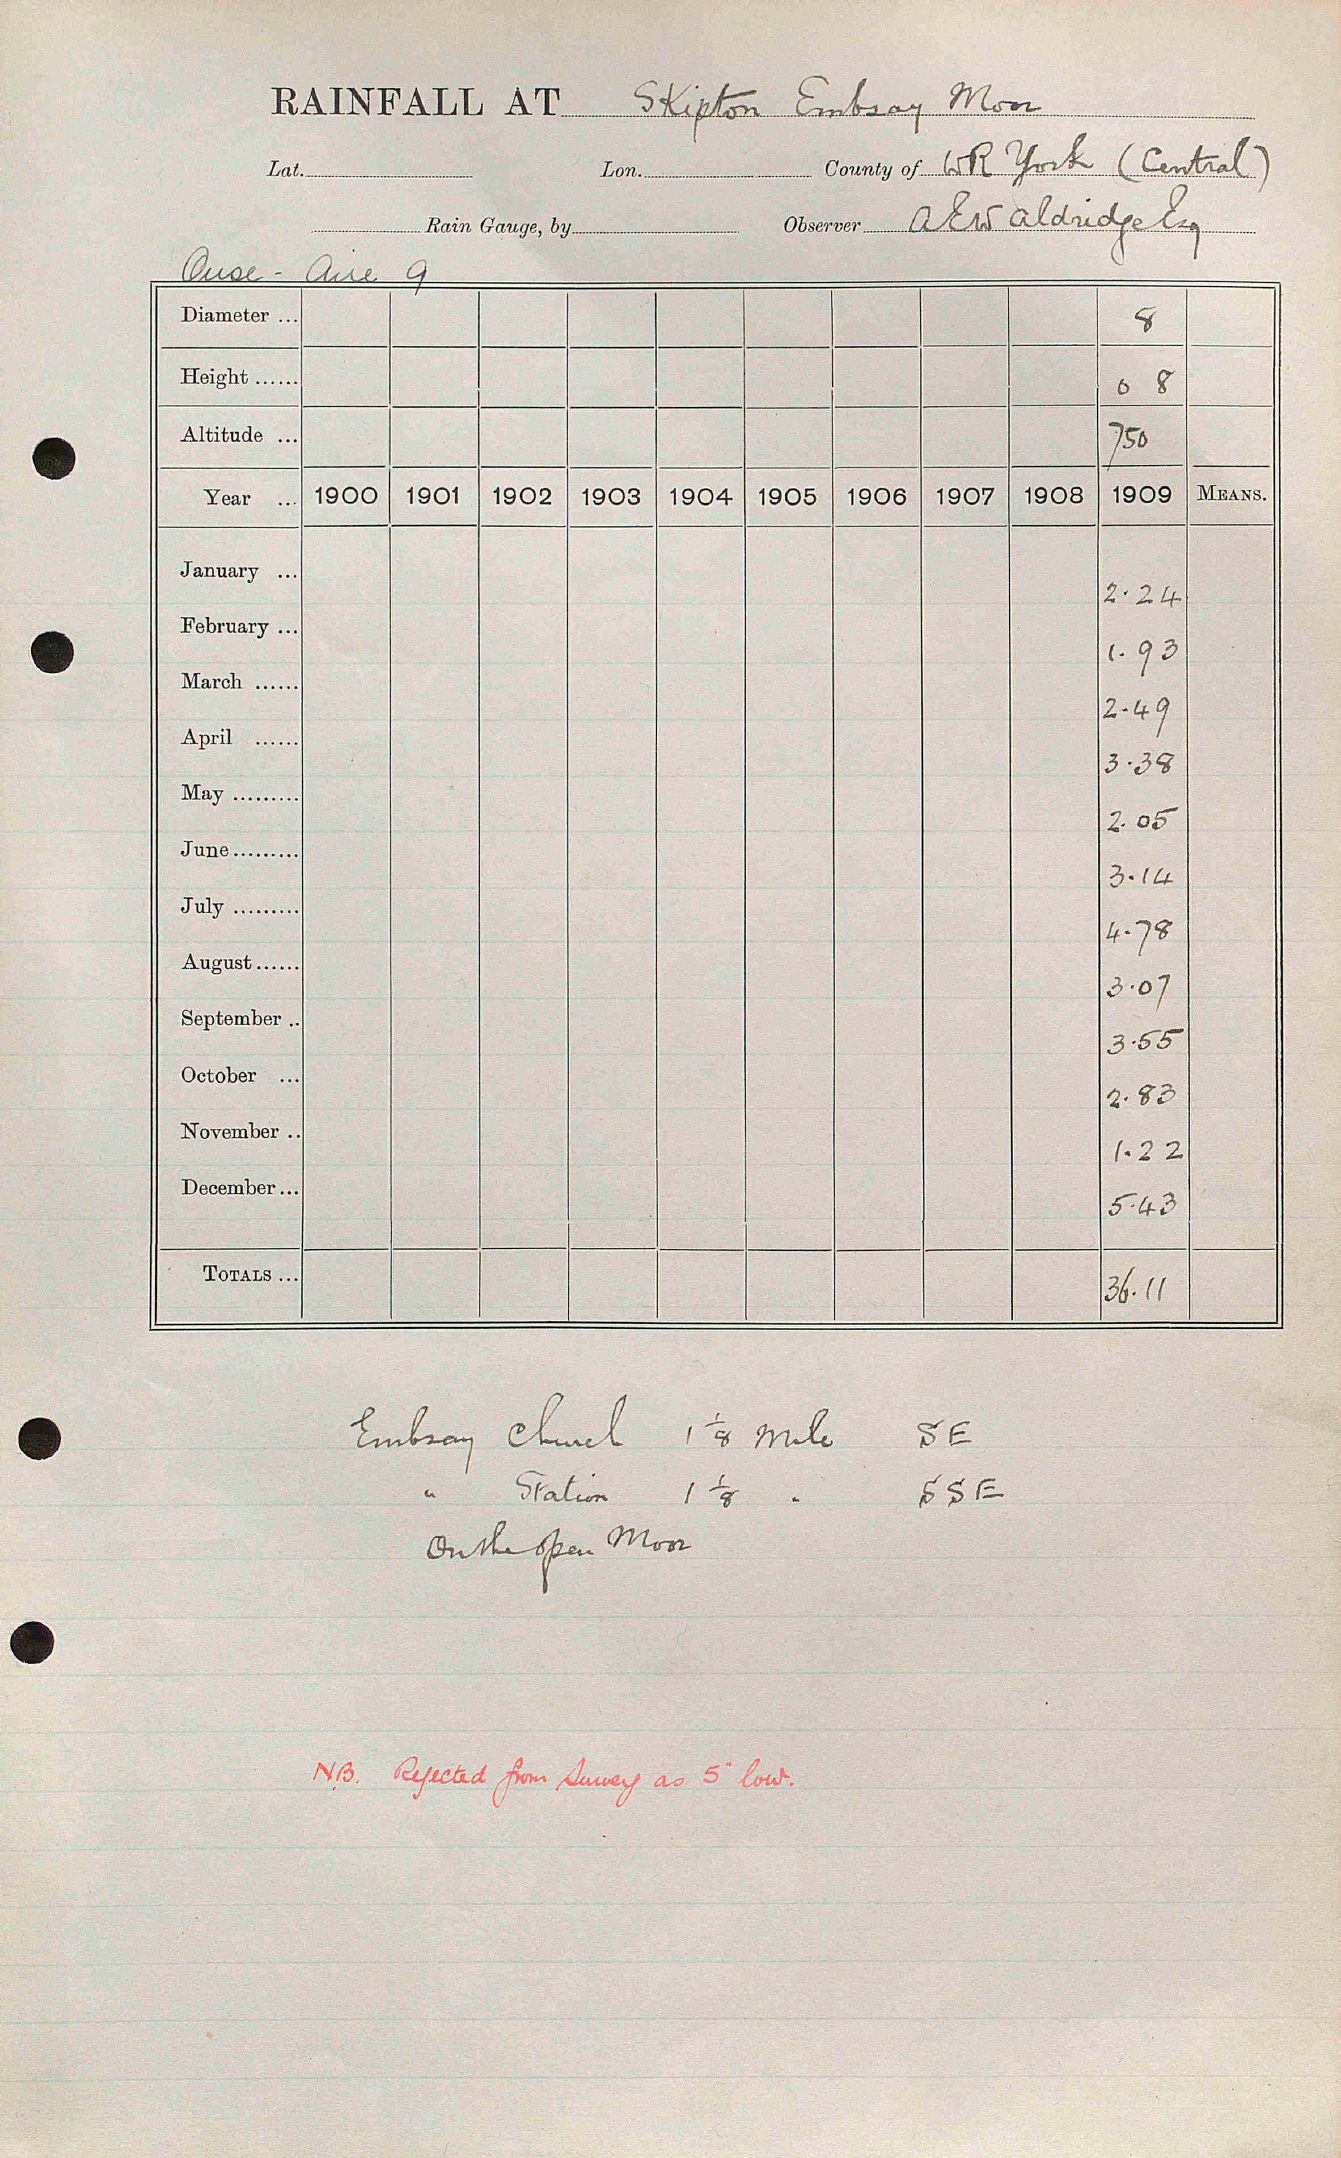 RAINFALL AT Skipton Embsay Moor
Lat. Lon. County of WR York (Central)
Rain Gauge, by Observer A E W Aldridge Esq
Ouse - Aire 9
Diameter ... 8
Height ...... 0 8
Altitude ... 750
Year ... 1900 1901 1902 1903 1904 1905 1906 1907 1908 1909 MEANS.
January ... 2.24
February ... 1.93
March ...... 2.49
April ...... 3.38
May ......... 2.05
June......... 3.14
July ......... 4.78
August...... 3.07
September .. 3.55
October ... 2.83
November .. 1.22
December... 5.43
TOTALS ... 36.11
Embsay Church 1 1/8 Mile SE
" Station 1 1/8 " SSE
On the open Moor
N.B. Rejected from Survey as 5" low.